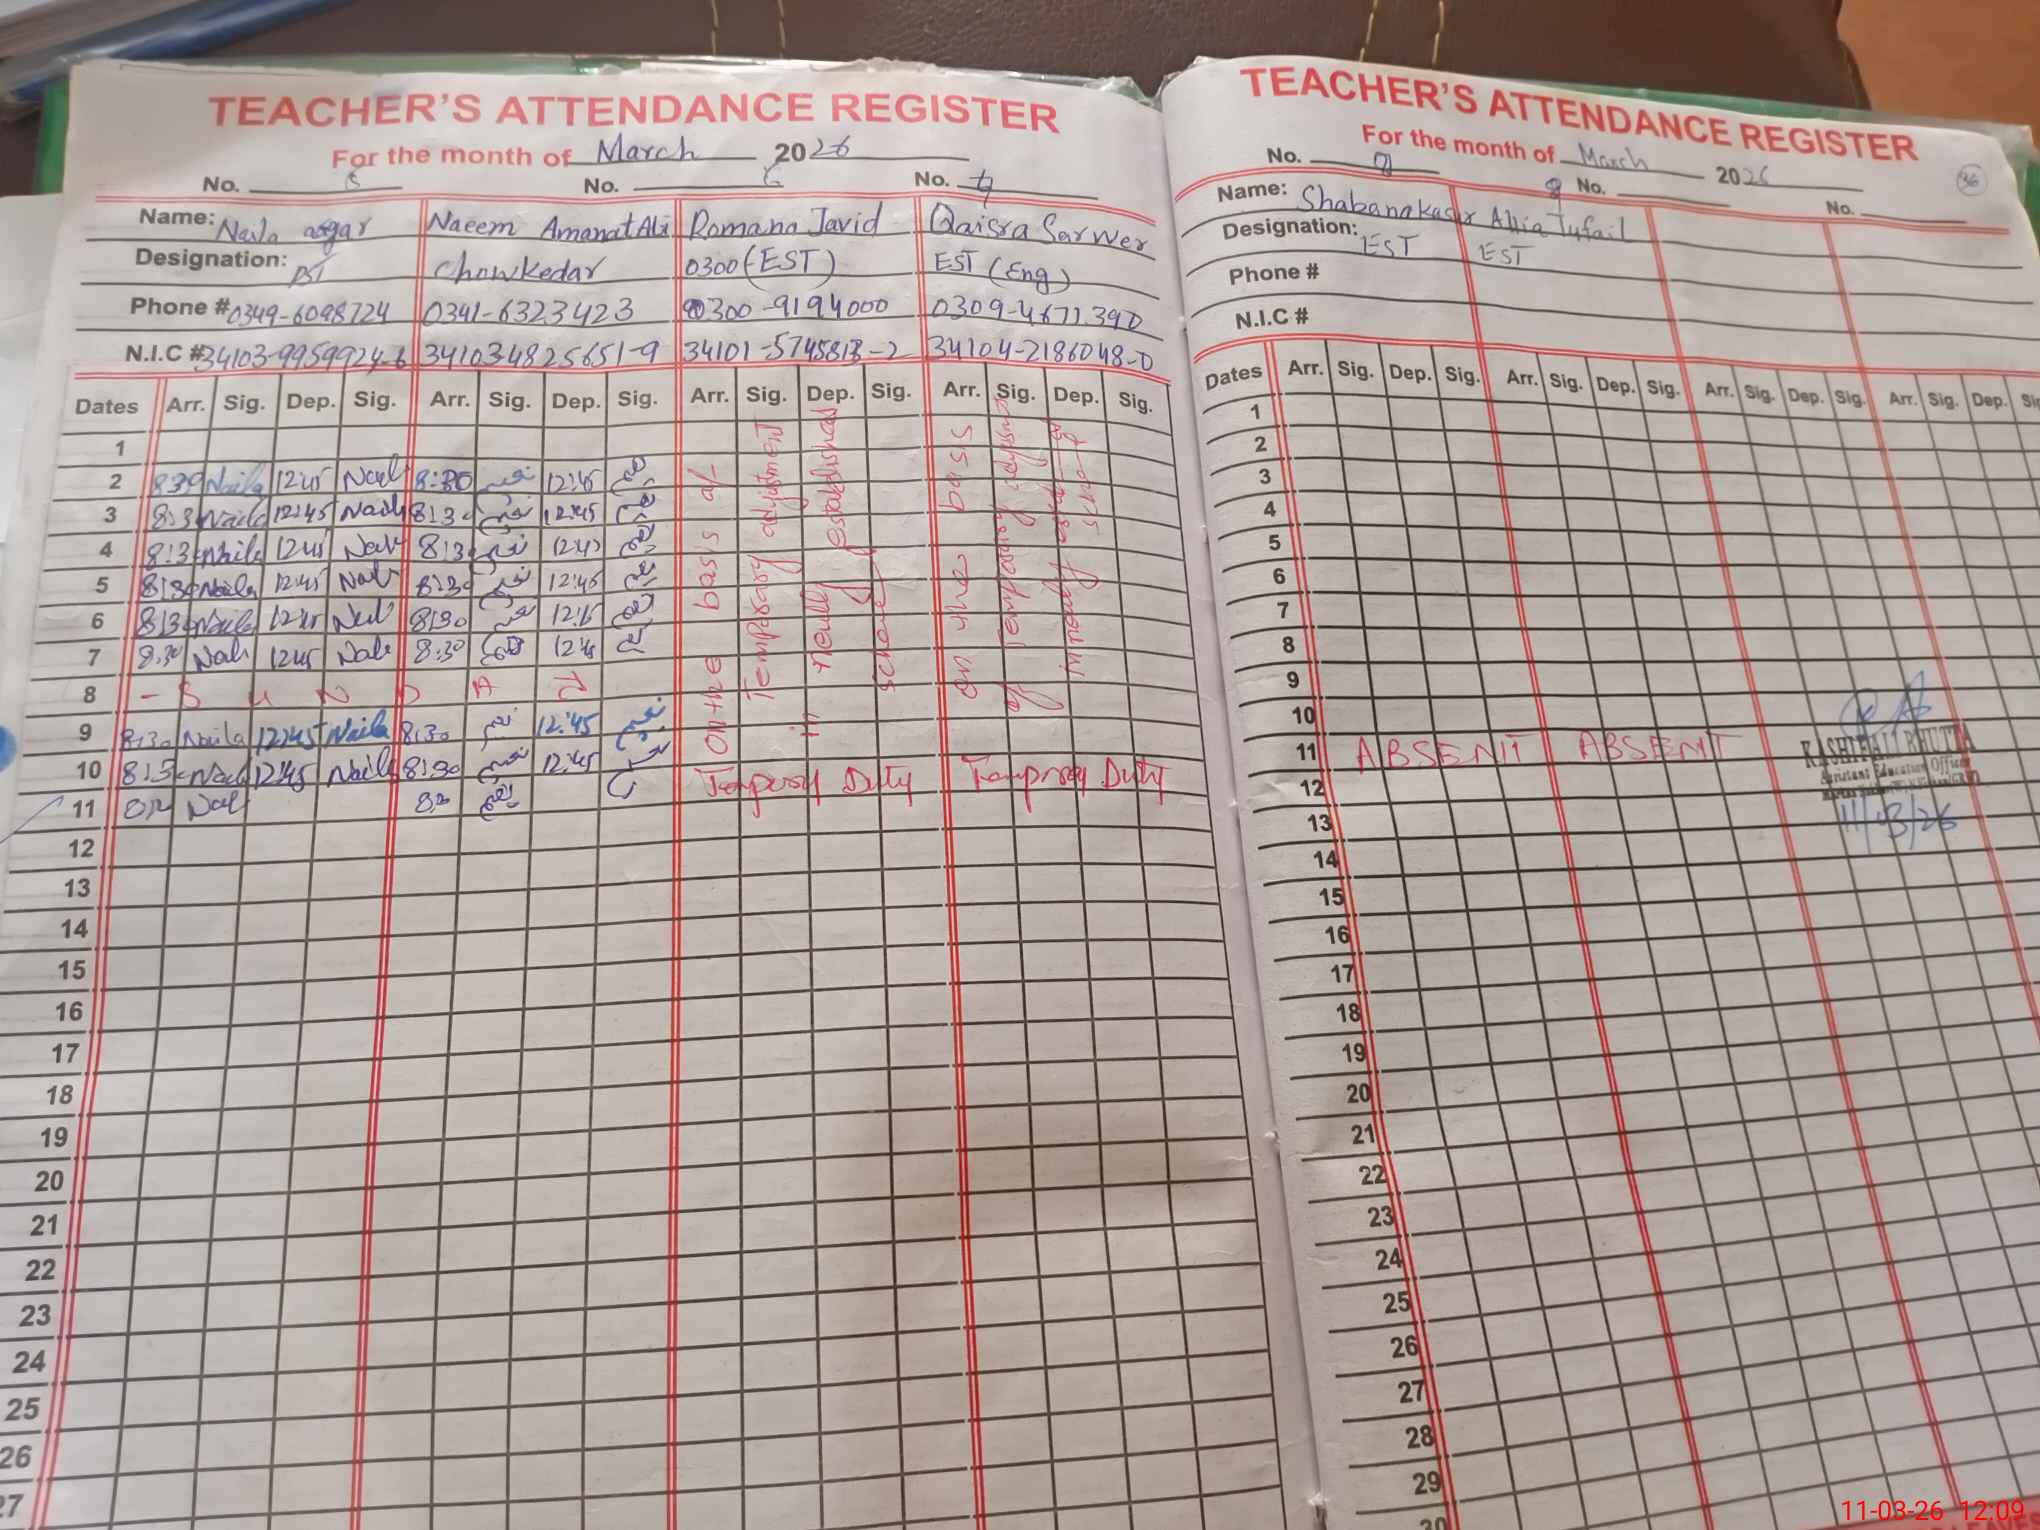 TEACHER'S ATTENDANCE REGISTER
For the month of March 2026
No. No. No.
Name: Naila asgar Naeem AmanatAli Romana Javid Qaisra Sarwer
Designation: PST Chowkedar 0300(EST) EST (Eng)
Phone # 0349-6098724 0341-6323423 0300-9194000 0309-4671390
N.I.C # 34103-9959924-6 341034825651-9 34101-5745813-2 34104-2186048-0
Dates Arr. Sig. Dep. Sig. Arr. Sig. Dep. Sig. Arr. Sig. Dep. Sig. Arr. Sig. Dep. Sig.
1
2 8:30 Naila 12:45 Nail 8:30 نعیم 12:45
3 8:30 Naila 12:45 Naila 8:30 نعیم 12:45
4 8:30 Naila 12:45 Nail 8:30 نعیم 12:45
5 8:30 Naila 12:45 Nail 8:30 نعیم 12:45
6 8:30 Naila 12:45 Nail 8:30 نعیم 12:45
7 8:30 Nail 12:45 Nail 8:30 12:45
8 - S U N D A Y
9 8:30 Naila 12:45 Naila 8:30 نعیم 12:45 نعیم
10 8:30 Nail 12:45 Naila 8:30 نعیم 12:45
11 Nail
On the basis of
Temporary adjustment
in newly established
school
on the basis
of Temporary adjustment
Temprory Duty Temprory Duty
12
13
14
15
16
17
18
19
20
21
22
23
24
25
26
27
TEACHER'S ATTENDANCE REGISTER
For the month of March 2026
36
No. 8 No. No.
Name: Shabanakasir Allia Tufail
Designation: EST EST
Phone #
N.I.C #
Dates Arr. Sig. Dep. Sig. Arr. Sig. Dep. Sig. Arr. Sig. Dep. Sig. Arr. Sig. Dep.
1
2
3
4
5
6
7
8
9
10
11 ABSENT ABSENT
KASHIF ALI BHUTTA
Assistant Education Officer
11/03/26
12
13
14
15
16
17
18
19
20
21
22
23
24
25
26
27
28
29
30
11-03-26 12:09